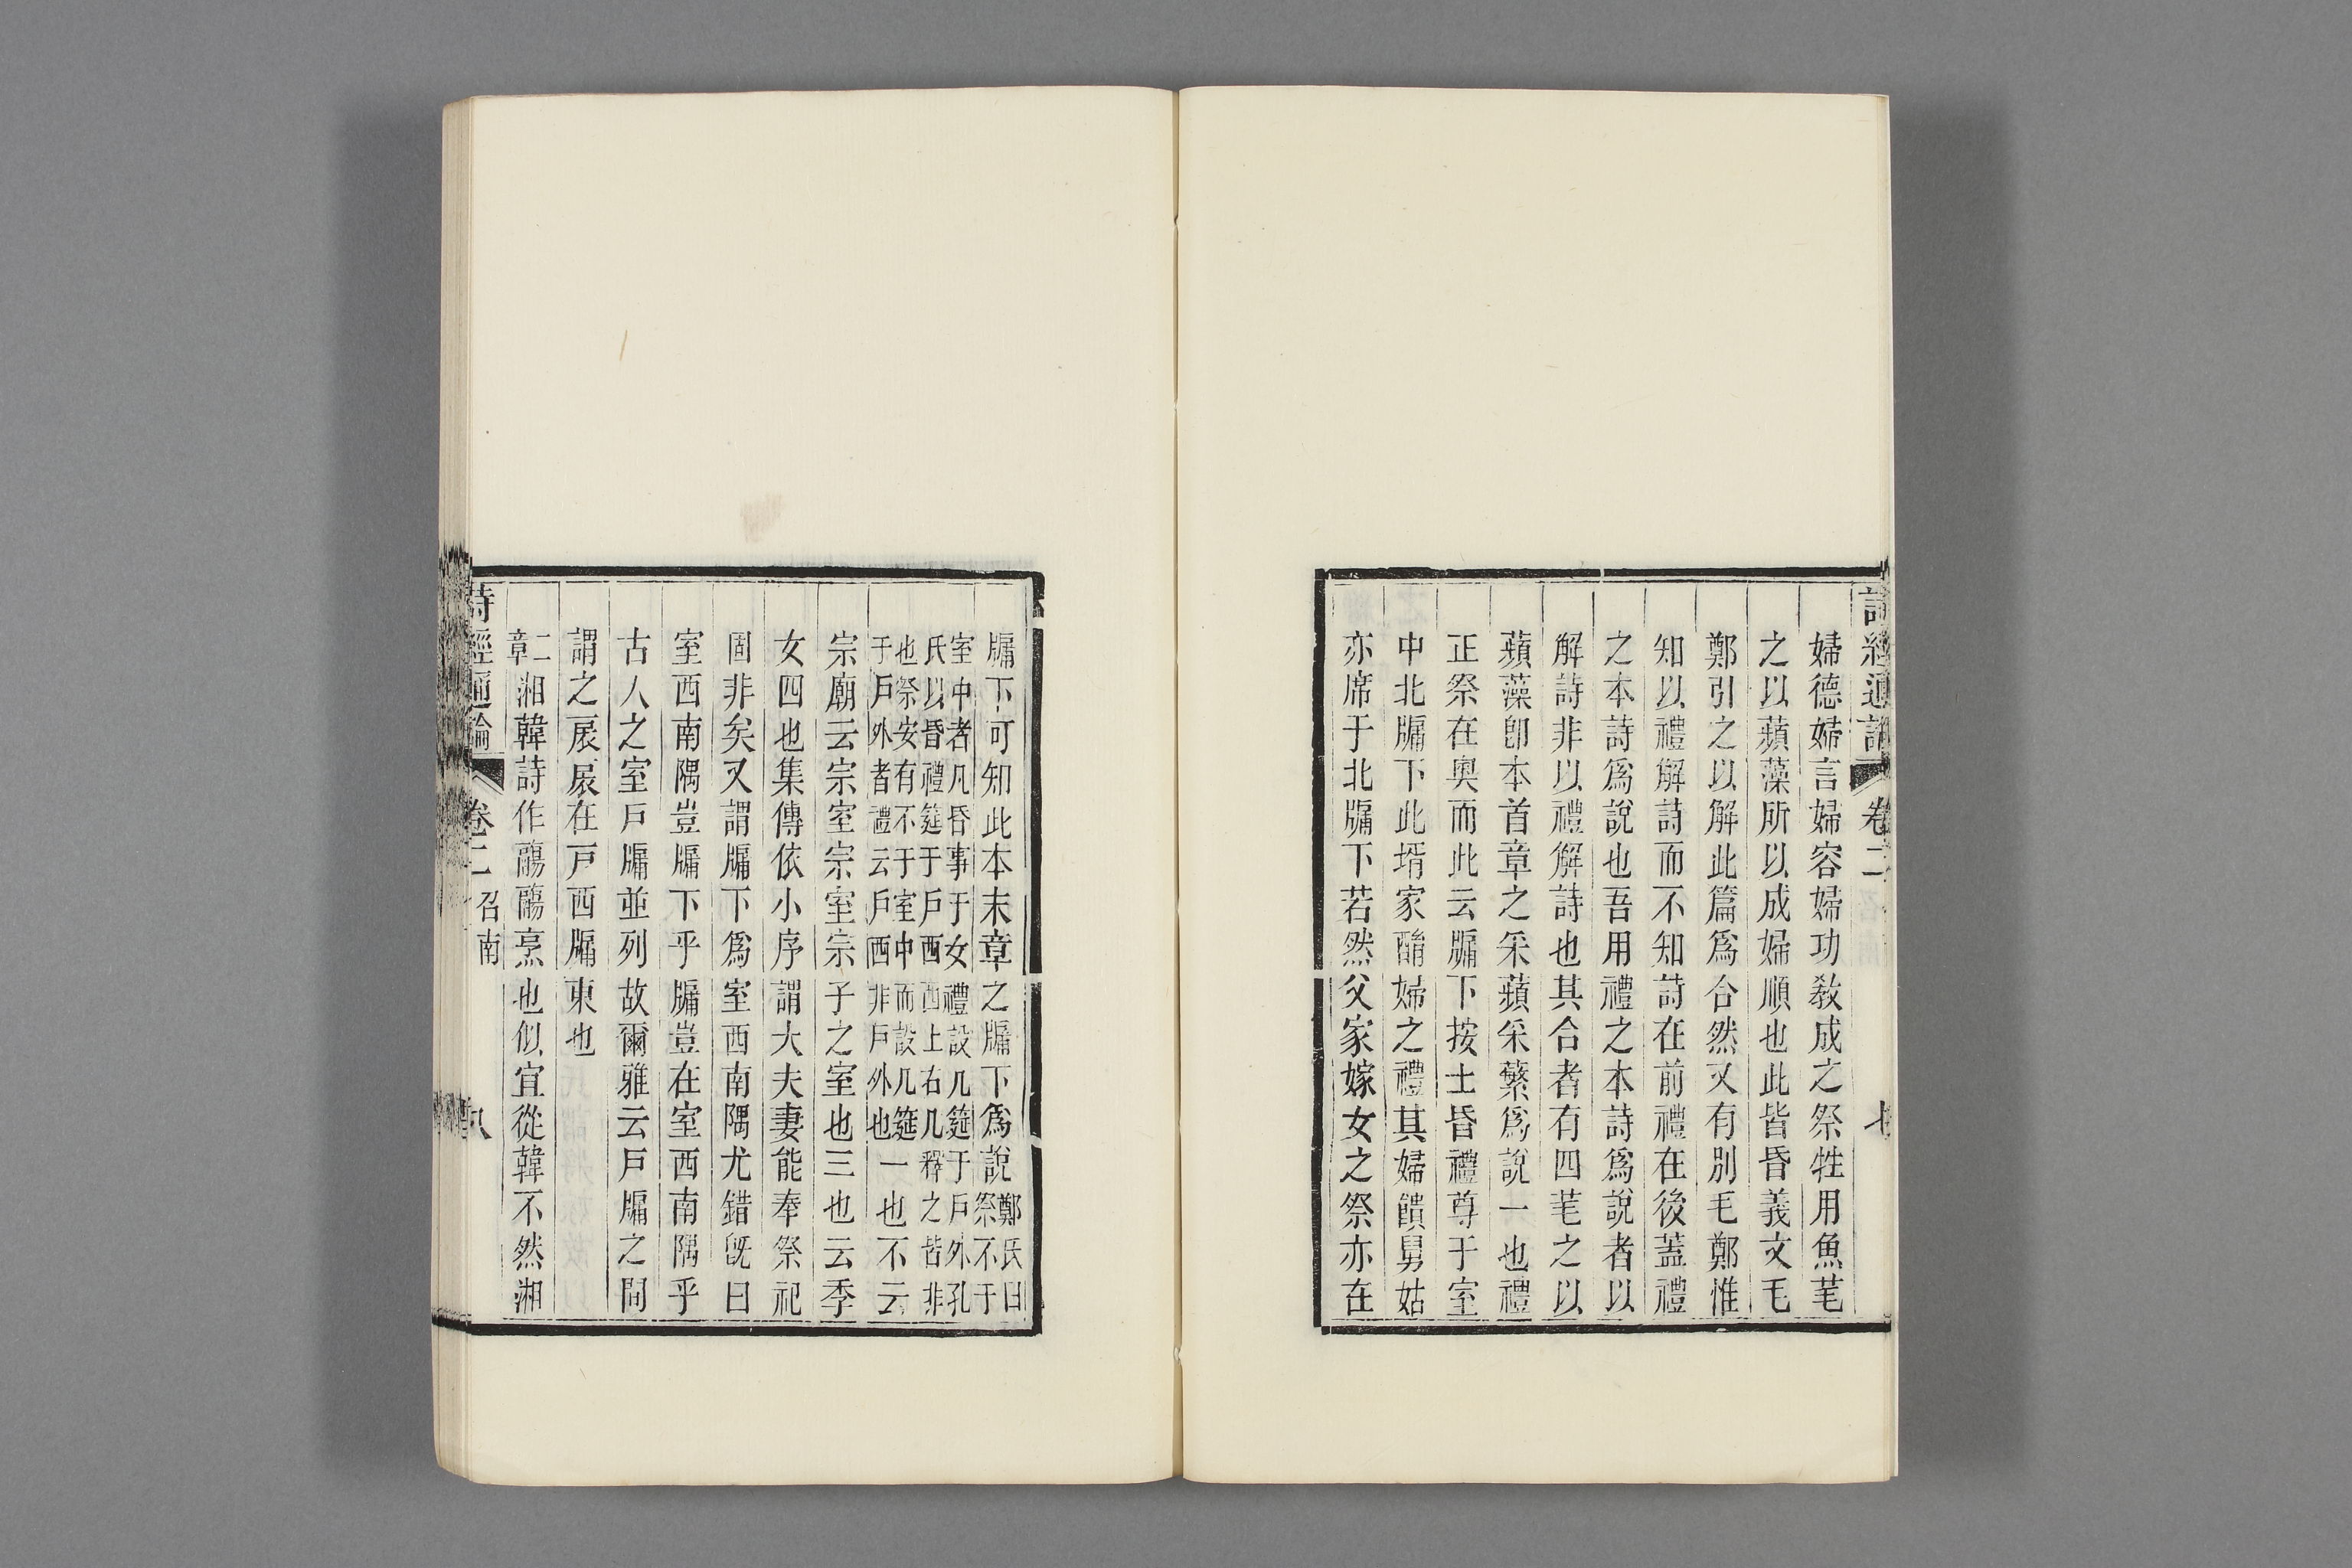 詩經通論
卷二
七
婦德婦言婦容婦功敎成之祭牲用魚芼
之以蘋藻所以成婦順也此皆昏義文毛
鄭引之以解此篇爲合然又有別毛鄭惟
知以禮解詩而不知詩在前禮在後蓋禮
之本詩爲說也吾用禮之本詩爲說者以
解詩非以禮解詩也其合者有四芼之以
蘋藻卽本首章之采蘋采蘩爲說一也禮
正祭在奧而此云牖下按士昏禮尊于室
中北牖下此壻家酳婦之禮其婦饋舅姑
亦席于北牖下若然父家嫁女之祭亦在
牖下可知此本末章之牖下爲說鄭氏曰
祭不于
室中者凡昏事于女禮設几筵于戶外孔
氏以昏禮筵于戶西西上右几釋之皆非
也祭安有不于室中而設几筵
于戶外者禮云戶西非戶外也一也不云
宗廟云宗室宗室宗子之室也三也云季
女四也集傳依小序謂大夫妻能奉祭祀
固非矣又謂牖下爲室西南隅尤錯旣曰
室西南隅豈牖下乎牖豈在室西南隅乎
古人之室戶牖並列故爾雅云戶牖之間
謂之扆扆在戶西牖東也
二章湘韓詩作鬺鬺烹也似宜從韓不然湘
詩經通論
卷二
召南
八